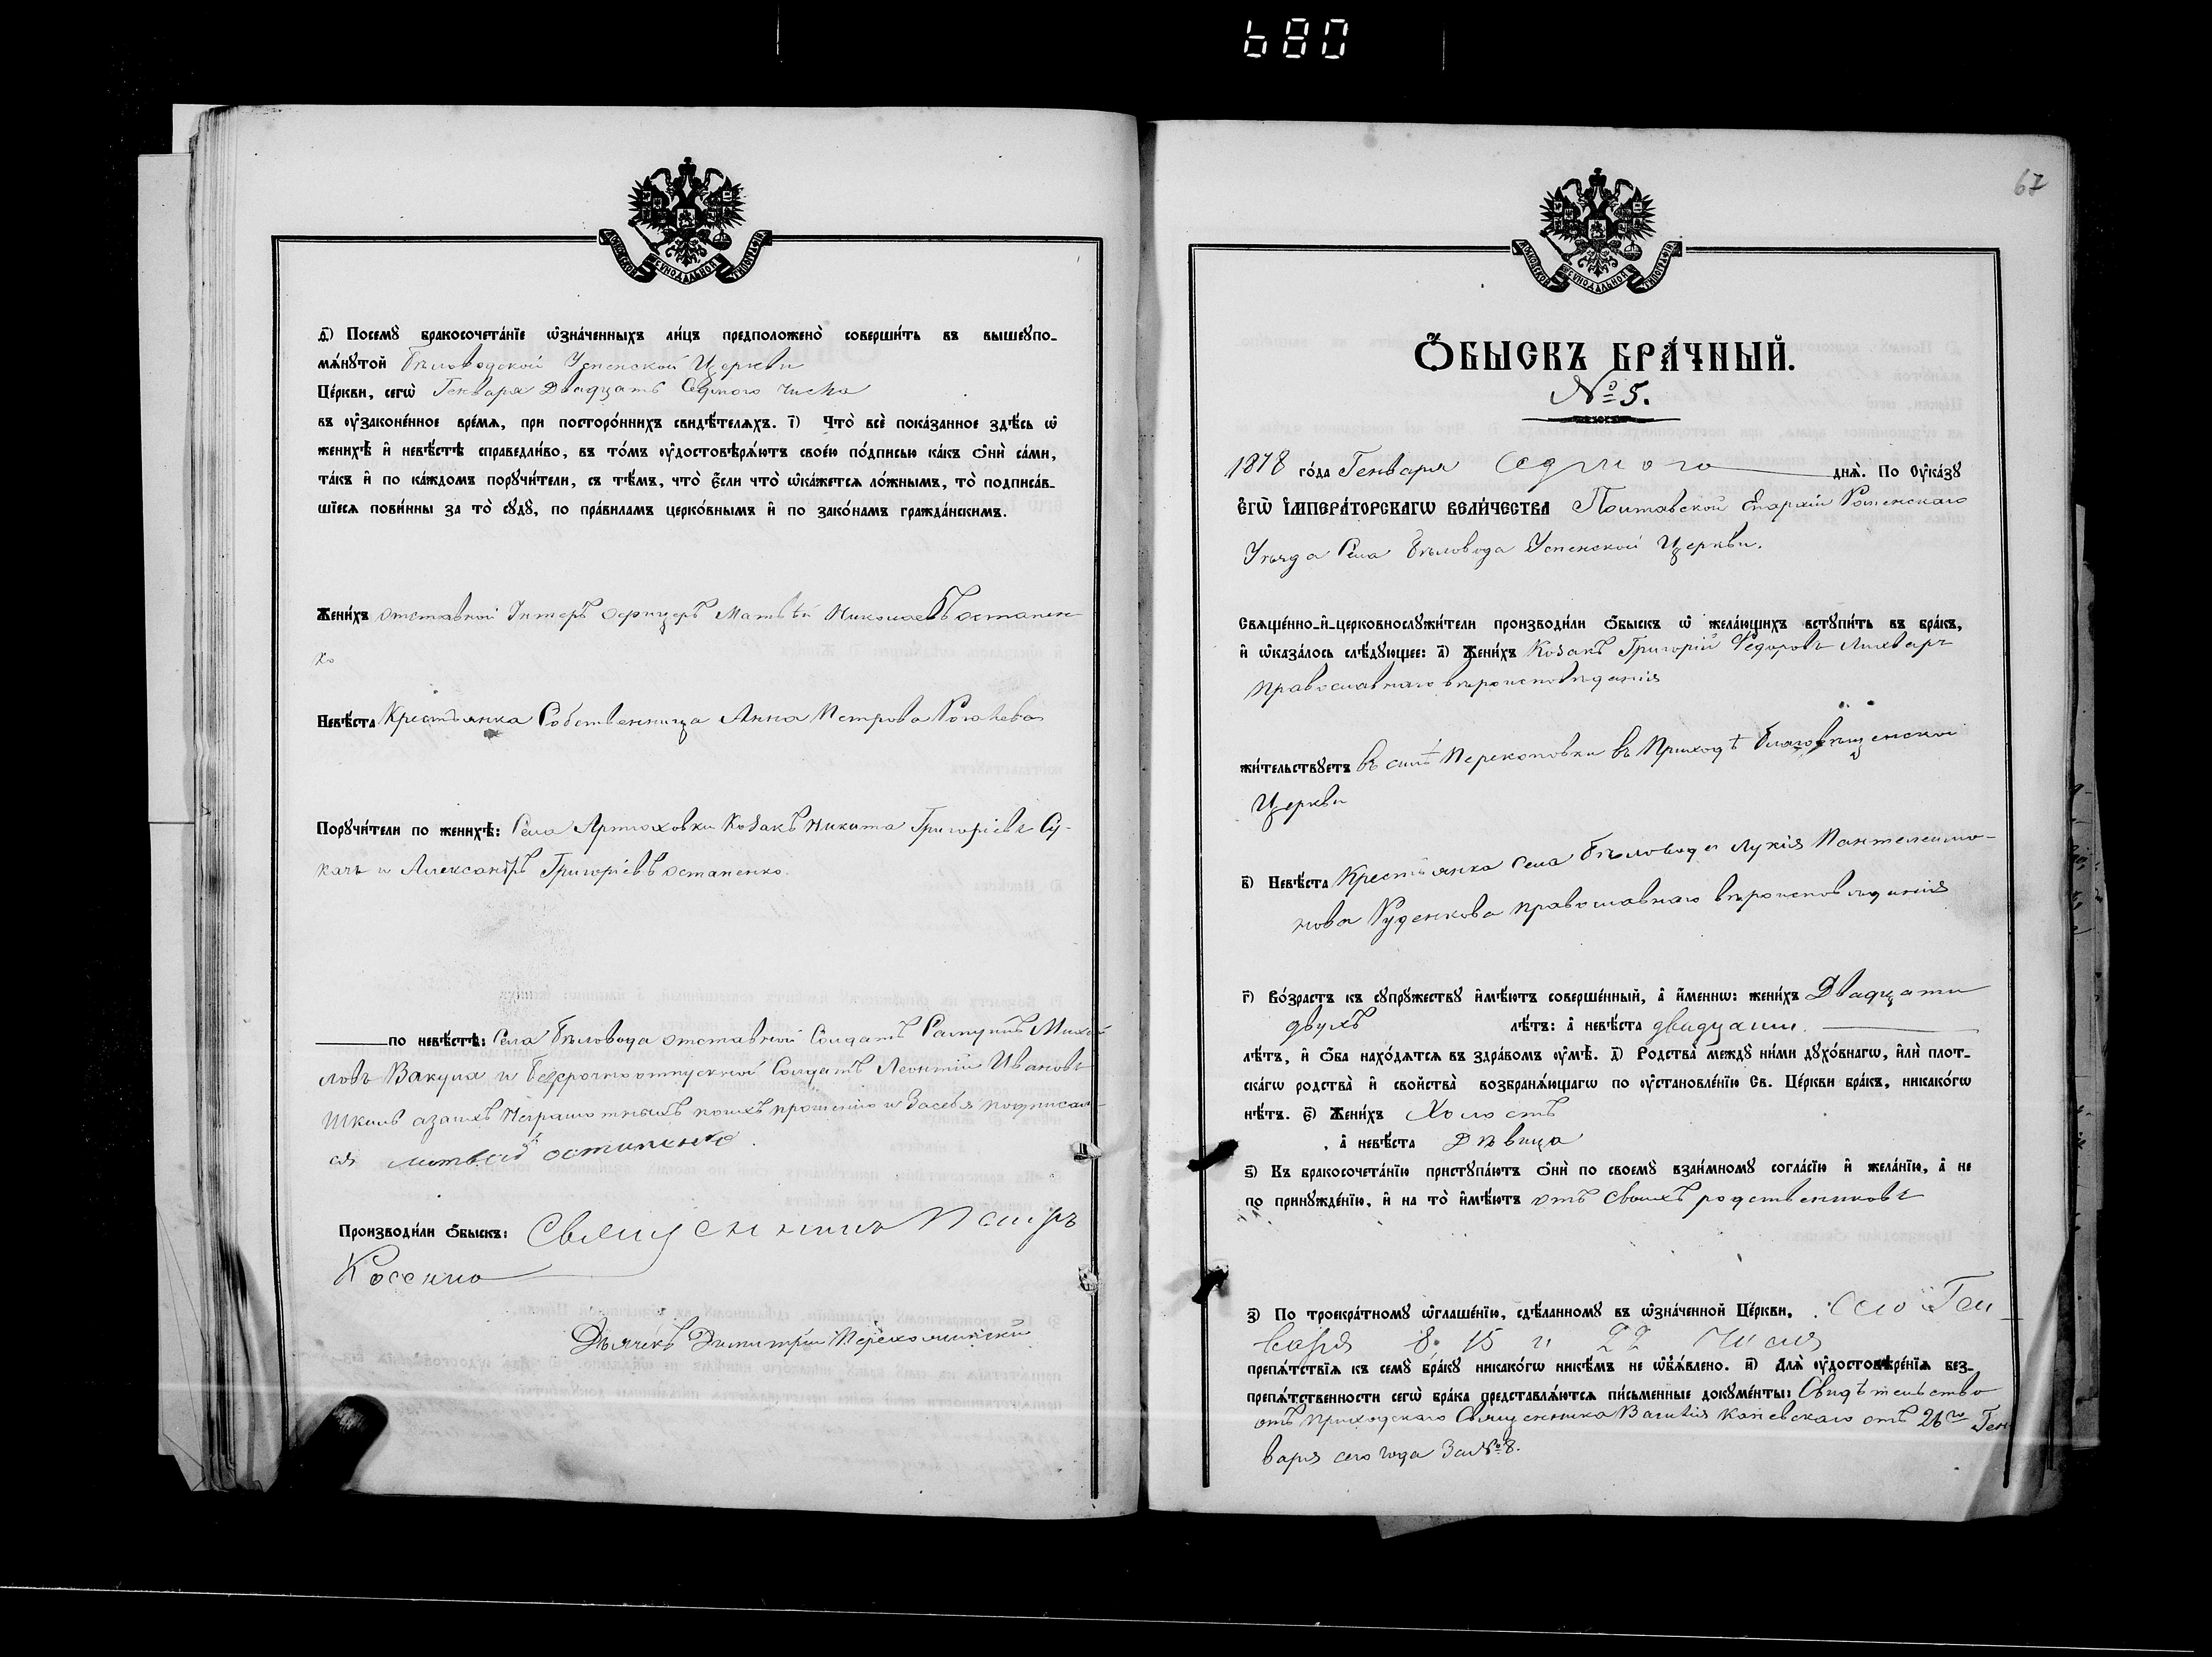 680
МОСКОВСКОЙ СѴНОДАЛЬНОЙ ТИПОГРАФІИ
ѳ҃) Посемꙋ̀ бракосочета́нїе ѡ҆зна́ченныхъ ли́цъ предположено̀ соверши́ть въ вышеꙋпо-
мѧ́нꙋтой Бѣловодской Успенской Церкви
Це́ркви, сегѡ̀ Генваря Двадцать Седмого числа
въ ᲂу҆зако́ненное вре́мѧ, при посторо́ннихъ свидѣ́телѧхъ. і҃) Что̀ всѐ пока́занное здѣ́сь ѡ҆
женихѣ̀ и҆ невѣ́стѣ справедли́во, въ то́мъ ᲂу҆достовѣрѧ́ютъ свое́ю по́дписью ка́къ ѻ҆нѝ са́ми,
та́къ и҆ по ка́ждомъ порꙋчи́тели, съ тѣ́мъ, что̀ є҆́сли что̀ ѡ҆ка́жетсѧ ло́жнымъ, то̀ подписа́в-
шїесѧ пови́нны за то̀ сꙋдꙋ̀, по пра́виламъ церко́внымъ и҆ по зако́намъ гражда́нскимъ.
Жени́хъ отставной Унтеръ Офицеръ Матвѣй Николаевъ Остапен
ко
Невѣ́ста Крестьянка Собственница Анна Петрова
Порꙋчи́тели по женихѣ̀: Села Артюховки Козакъ Никита Григоріевъ Су-
качъ и Александръ Григоріевъ Остапенко.
по невѣ́стѣ: Села Бѣловода отставной Солдатъ Михай
ловъ Вакула и безсрочноотпускной Солдатъ Леонтій Ивановъ
неграмотныхъ по ихъ прошенію и за себя подписал-
ся Матвей Остапенко.
Производи́ли ѻ҆́быскъ: Священникъ Петръ
Косенко
Дьячекъ Димитрій
67
МОСКОВСКОЙ СѴНОДАЛЬНОЙ ТИПОГРАФІИ
Ѻ҆́БЫСКЪ БРА́ЧНЫЙ.
№ 5.
1878 го́да Генваря Седмого днѧ̀. По Оу҆ка́зꙋ
Є҆ГѠ̀ І҆МПЕРА́ТОРСКАГѠ ВЕЛИ́ЧЕСТВА Полтавской Епархіи Роменскаго
Уѣзда Села Бѣловода Успенской Церкви.
Свѧще́нно-и҆-церковнослꙋжи́тели производи́ли ѻ҆́быскъ ѡ҆ жела́ющихъ встꙋпи́ть въ бра́къ,
и҆ ѡ҆каза́лось слѣ́дꙋющее: а҃) Жени́хъ Козакъ Григорій Федоровъ Лихваръ
Православнаго вѣроисповѣданія
жи́тельствꙋетъ въ селѣ Перекоповки въ Приходѣ Благовѣщенской
Церкви
в҃) Невѣ́ста Крестьянка Села Бѣловода Лукія Пантелеимо-
нова Руденкова православнаго вѣроисповѣданія
г҃) Во́зрастъ къ сꙋпрꙋ́жествꙋ и҆мѣ́ютъ соверше́нный, а҆ и҆́менно: жени́хъ Двадцати
двухъ лѣ́тъ: а҆ невѣ́ста двадцати
лѣ́тъ, и҆ ѻ҆́ба нахо́дѧтсѧ въ здра́вомъ ᲂу҆мѣ̀. д҃) Родства̀ междꙋ̀ ни́ми дꙋхо́внагѡ, и҆лѝ плот-
ска́гѡ родства̀ и҆ свойства̀ возбранѧ́ющагѡ по ᲂу҆становле́нїю Св. Це́ркви бра́къ, никако́гѡ
нѣ́тъ. є҃) Жени́хъ Холостъ
, а҆ невѣ́ста Дѣвица
ѕ҃) Къ бракосочета́нїю пристꙋпа́ютъ ѻ҆нѝ по своемꙋ̀ взаи́мномꙋ согла́сїю и҆ жела́нїю, а҆ не
по принꙋжде́нїю, и҆ на то̀ и҆мѣ́ютъ отъ своихъ родственниковъ
з҃) По троекра́тномꙋ ѡ҆глаше́нїю, сдѣ́ланномꙋ въ ѡ҆зна́ченной Це́ркви, Сего Ген-
варя 8. 15 и 22 числа
препѧ́тствїѧ къ семꙋ̀ бра́кꙋ никако́гѡ никѣ́мъ не ѡ҆б̾ѧ́влено. и҃) Длѧ̀ ᲂу҆достовѣре́нїѧ без-
препѧ́тственности сегѡ̀ бра́ка представлѧ́ютсѧ пи́сьменные докꙋме́нты: Свидѣтельство
отъ приходскаго Священника Василія Каневскаго отъ 26го Ген
варя сего года За № 8.